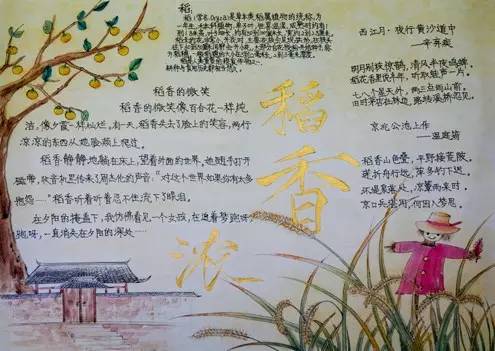 稻
稻香的微笑
稻香的微笑像百合花一样纯
洁,像夕霞一样灿烂。有一天,稻香失去了脸上的笑容,两行
凉凉的东西从她脸颊上爬过。
稻香静静地躺在床上,望着外面的世界,她随手打开
磁带,收音机里传来了周杰伦的声音。"对这个世界如果你有太多
抱怨……"稻香听着听着忍不住流下了眼泪。
在夕阳的掩盖下,我仿佛看见一个女孩,在追着梦跑呀
跑呀,一直消失在夕阳的深处……
稻香浓
西江月·夜行黄沙道中
——辛弃疾
明月别枝惊鹊,清风半夜鸣蝉
稻花香里说丰年,听取蛙声一片。
七八个星天外,两三点雨山前,
旧时茅店社林边,路转溪桥忽见。
京兆公池上作
——温庭筠
稻香山色叠,平野接荒陂。
莲折舟行远,萍多钓下迟。
坏堤泉落处,凉簟雨来时。
京口兵堪用,何因入梦思。